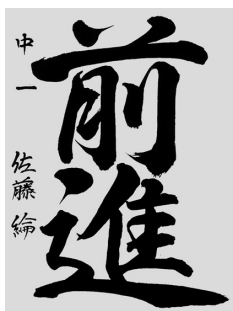 前進
中一 佐藤綸